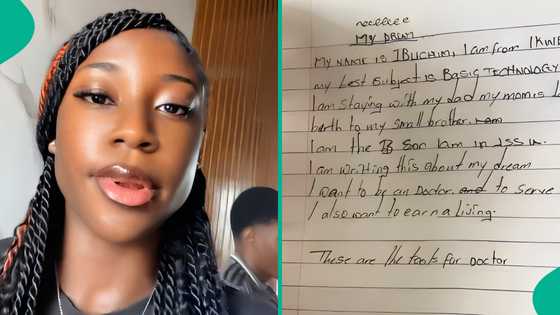 MY DREAM
MY NAME IS IBUCHIM, I am from IKWE
my best subject is BASIC TECHNOLOGY
I am staying with my dad my mom is
berth to my small brother.
I am the son Iam in JSS
I am writing this about my dream
I want to be an Doctor. to serve
I also want to earn a living.
These are the tools for Doctor